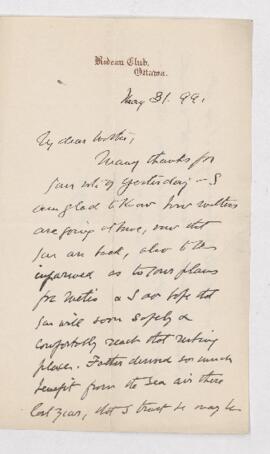 Rideau Club,
Ottawa.
May 31. 99.
My dear
Many thanks for
your note of yesterday – I
am glad to know how matters
are going at home, now that
you are back, also to be
informed as to your plans
for Metis & I do hope that
you will soon safely &
comfortably reach that resting
place. Father derived so much
benefit from the sea air there
last year, that I trust he may be